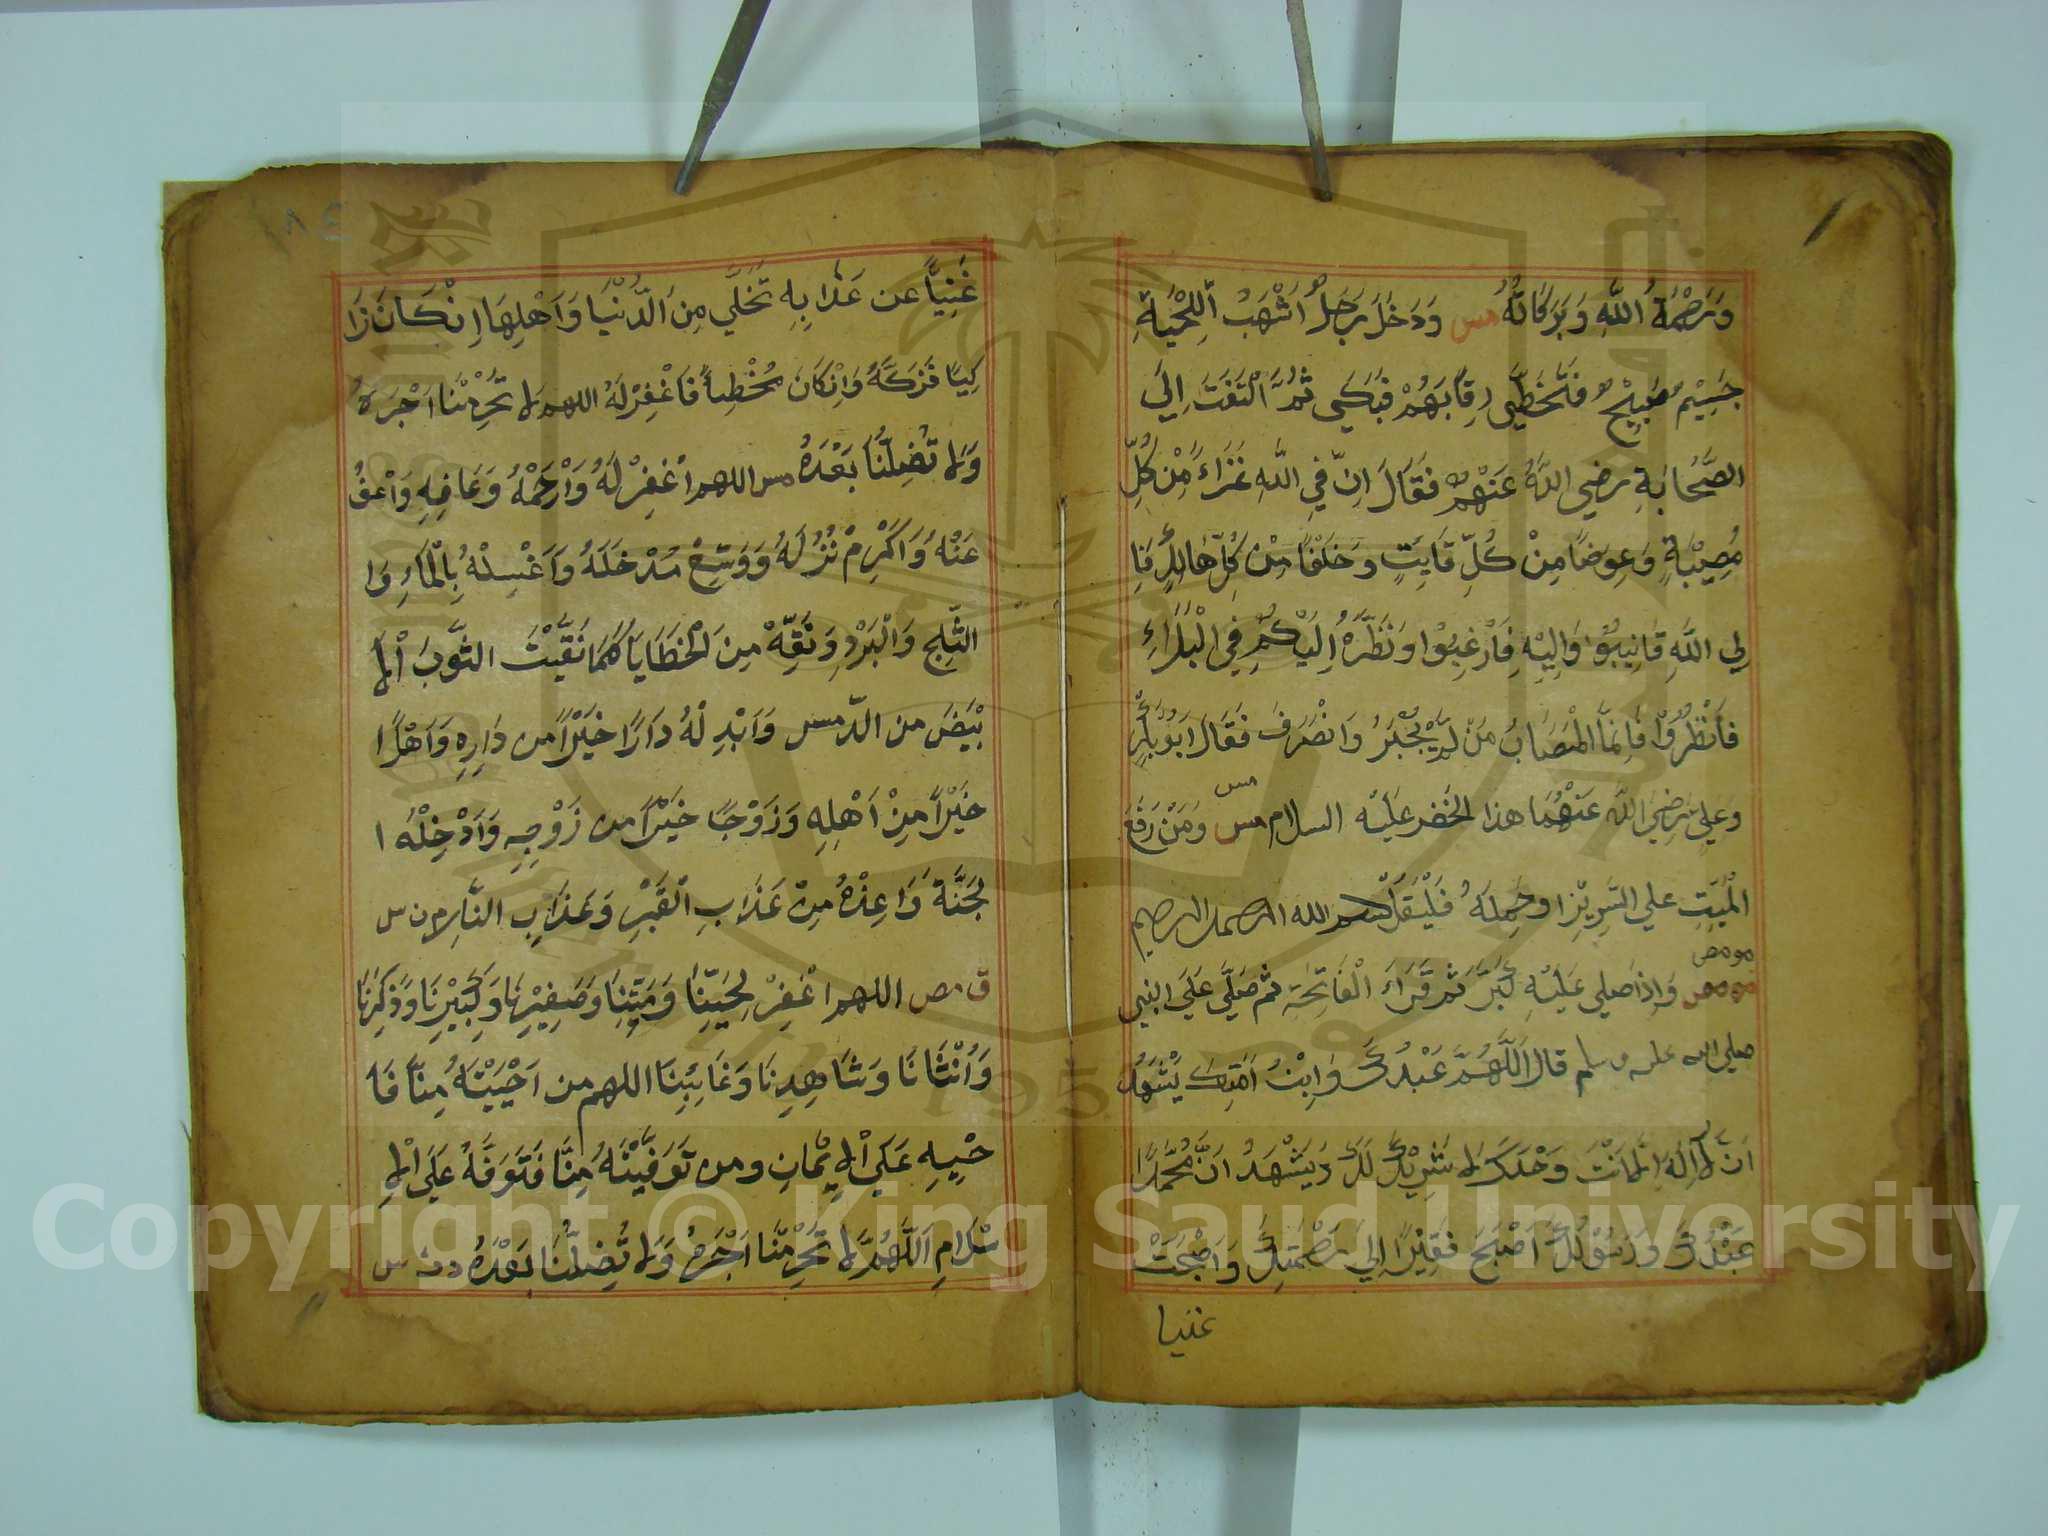 وَرَحْمَةُ اللَّهِ وَبَرَكَاتُهُ مس وَدَخَلَ رَجُلٌ اَشْهَبُ اللِّحْيَةِ
جَسِيْمٌ صَبِيْحٌ فَتَخَطَّى رِقَابَهُمْ فَبَكَى ثُمَّ الْتَفَتَ اِلَي
الصَّحَابَةِ رضي اللهُ عَنْهُمْ فَقَالَ اِنَّ فِي اللَّهِ عَزَاءً مِنْ كُلِّ
مُصِيْبَةٍ وَعِوَضًا مِنْ كُلِّ فَايِتٍ وَخَلَفًا مِنْ كُلِّ هَالِكٍ فَاِ
لي اللَّهِ فَانِيبُوْا وَاِلَيْهِ فَارْغَبُوْا وَنَظَرُهُ اِلَيْكُمْ فِي الْبَلَاءِ
فَانْظُرُوْا فَاِنَّمَا الْمُصَابُ مَنْ لَمْ يُجْبَرْ وَانْصَرَفَ فَقَالَ اَبُوْبَكْرٍ
مس
وَعَلِيٌّ رَضِيَ اللهُ عَنْهُمَا هذا الخَضر عَلَيْهِ السلام مس وَمَنْ رَفَعَ
الْمَيِّتِ علي السَّرِيْرِ او حَمَلَهُ فَلْيَقُلْ بسم الله الرحمن الرحيم
مو مص
مو مص وَاِذا صلي عَلَيْهِ كَبَّرَ ثم قَرَاَءَ الْفَاتِحَةِ ثم صَلَّي عَلَيَ النبي
صلي الله عليه وسلم قال اَللَّهُمَّ عَبْدُكَ وَابْنُ اَمَتِكَ يَشْهَدُ
اَنْ لَّا اِلَهَ اِلَّا اَنْتَ وَحْدَكَ لا شَرِيْكَ لَكَ وَيَشْهَدُ اَنَّ مُحَمَّدًا
عَبْدُكَ وَرَسُوْلُكَ اَصْبَحَ فَقِيْرًا اِلَي رَحْمَتِكَ وَاَصْبَحَتْ
غنيا
غَنِيًّا عن عَذَابِهِ تَخَلَّي مِنَ الدُّنْيَا وَاَهْلِهَا اِنْ كَانَ زَا
كِيًا فَزَكِّهُ وَاِنْ كَانَ مُخْطِئاً فَاغْفِرْ لَهُ اللهم لا تَحْرِمْنَا اَجْرَهُ
وَلا تُضِلَّنَا بَعْدَهُ مس اللهم اغْفِرْ لَهُ وَارْحَمْهُ وَعَافِهِ وَاعْفُ
عَنْهُ وَاَكْرِمْ نُزُلَهُ وَوَسِّعْ مُدْخَلَهُ وَاغْسِلْهُ بِالْمَاءِ وَا
الثَّلِجِ وَالْبَرْدِ وَنَقِّهْ مِنَ الْخَطَايَا كَمَا نَقَّيْتَ الثَّوْبَ اْلا
بْيَضَ من الدّمس وَاَبْدِلْهُ دَارًا خَيْرًا من دَارِهِ وَاَهْلًا
خَيْرًا مِنْ اَهْلِهِ وَزَوْجًا خَيْرًا من زَوْجِهِ وَاَدْخِلْهُ ا
لجَنَّة وَاَعِذْهُ مِنْ عَذَابِ الْقَبْرِ وَعَذَابِ النَّارِ م ن س
ق مص اللهم اغْفِرْ لِحَيِّنَا وَمَيِّتِنَا وَصَغِيْرِنَا وَكَبِيْرِنَا وَذَكَرِنَا
وَاُنْثَانَا وَشَاهِدِنَا وَغَائِبِنَا اللهم من اَحْيَيْتَهُ مِنَّا فَا
حْيِهِ عَلَي اْلاِيْمَانِ ومن تَوَفَّيْتَهُ مِنَّا فَتَوَفَّهُ عَلَي اْلاِ
سْلَامِ اَللَّهُمَّ لا تَحْرِمْنَا اَجْرَهُ وَلا تُضِلَّنَا بَعْدَهُ د ت س
Copyright © King Saud University